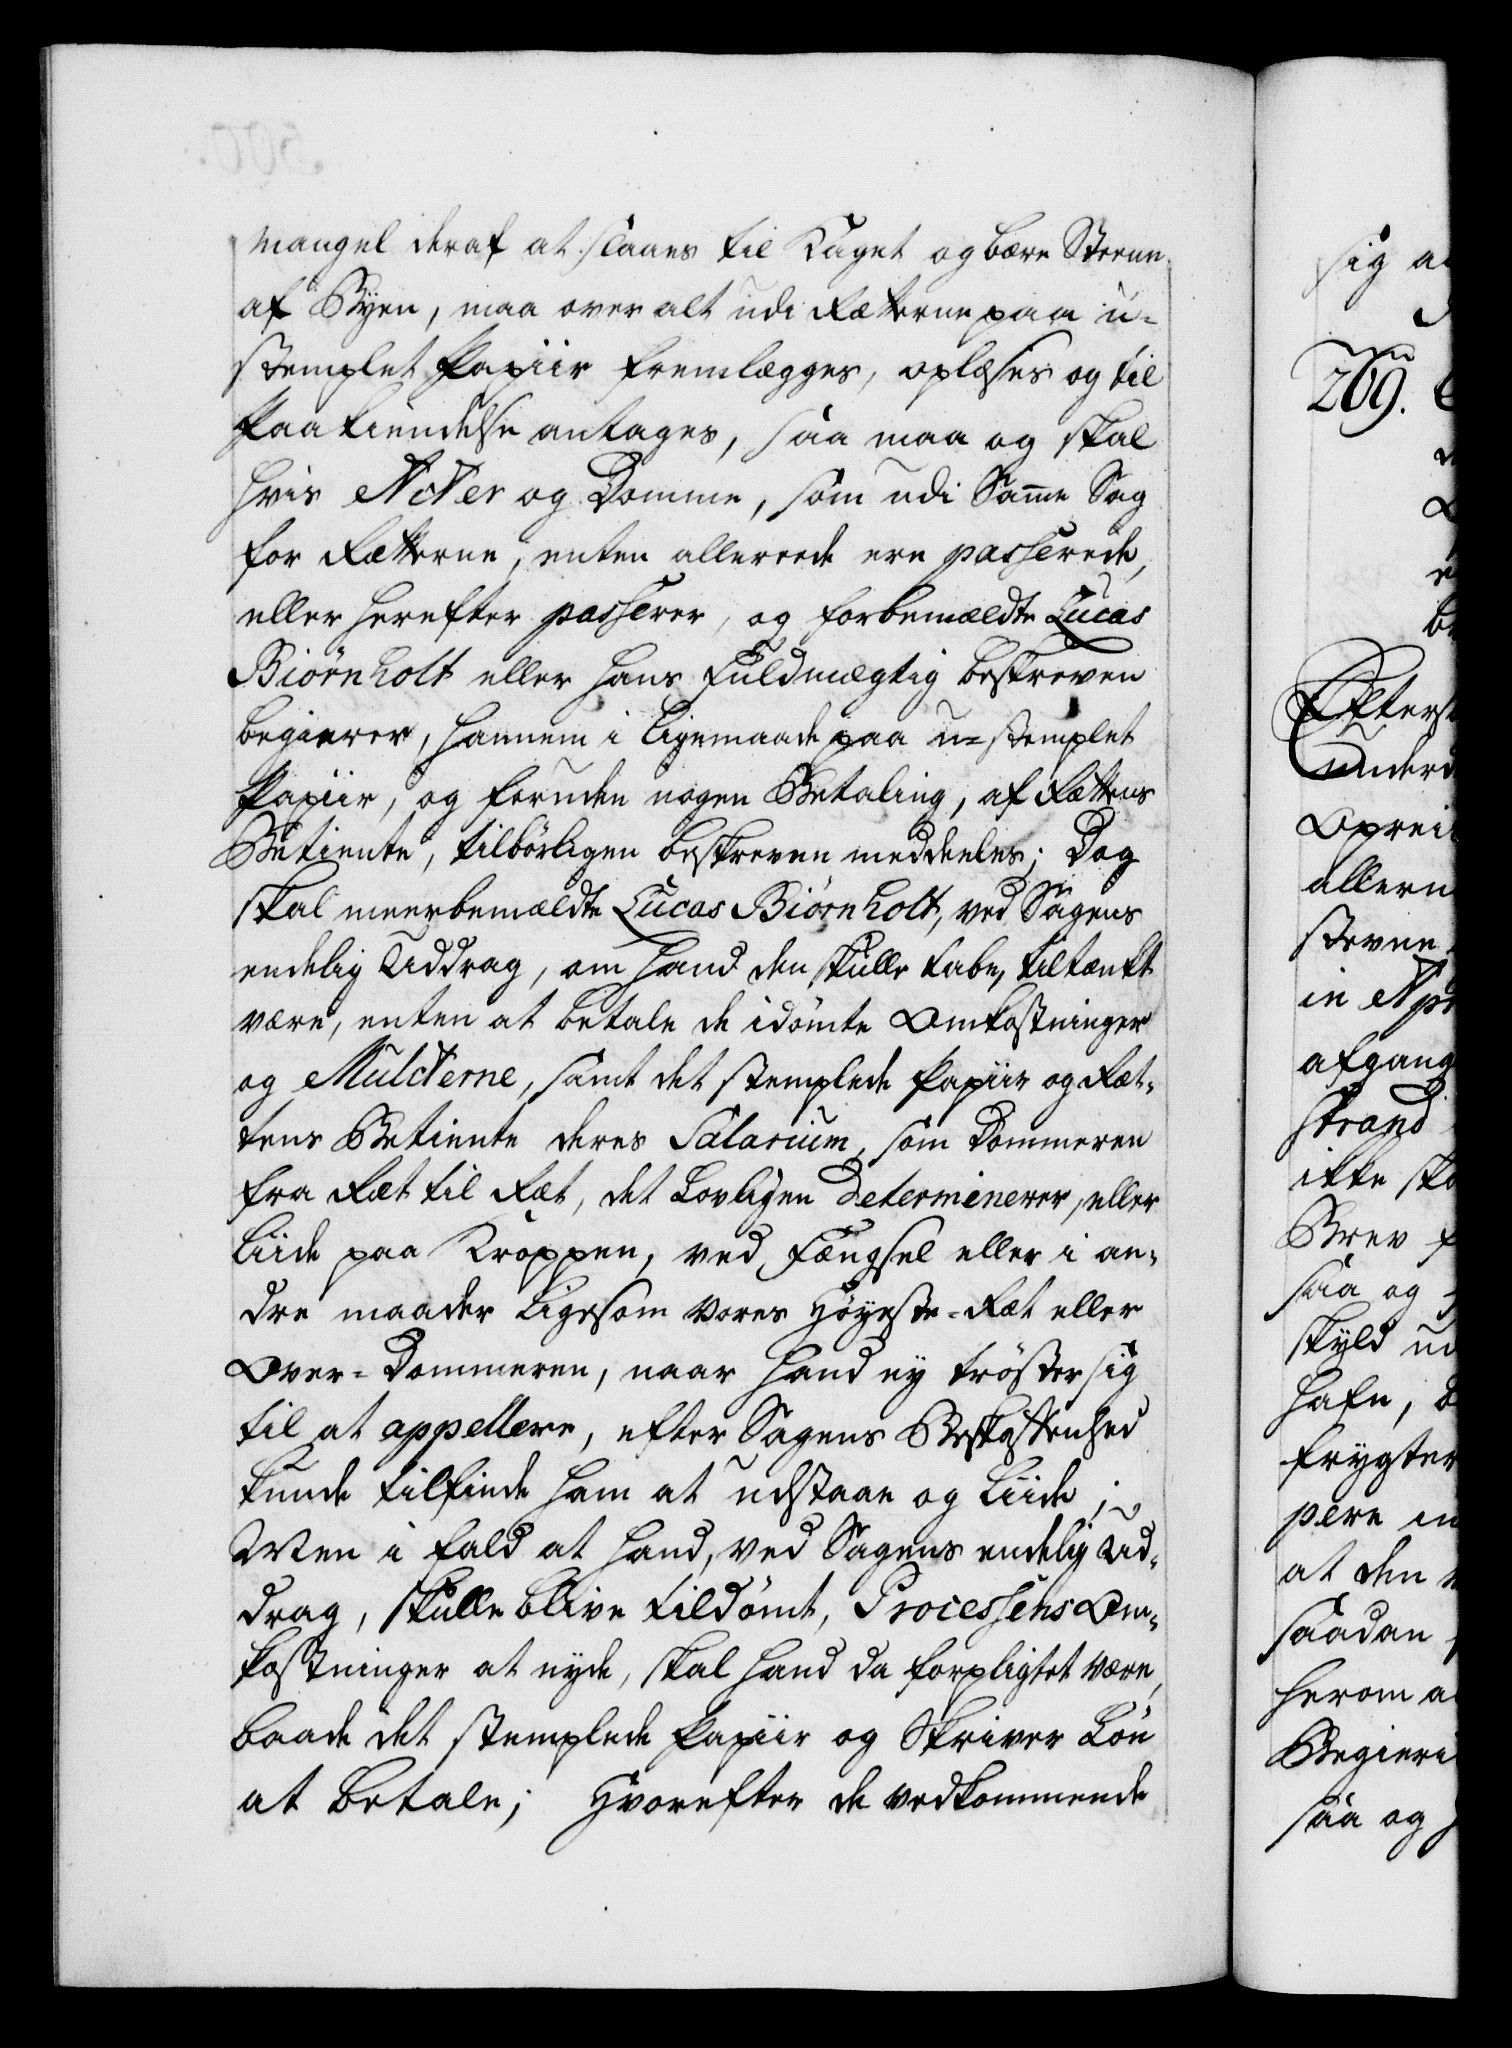 mangel deraf at slaaes til Kaget og bære Steene
af Byen, maa over alt udi Rætterne paa u-
stemplet Papiir fremlægges, oplæses og til
Paakiendelse antages, saa maa og skal
hvis Acter og Domme, som udi Samme Sag
for Rætterne, enten allereede ere passerede,
eller herefter passerer, og forbemældte Lucas
Biörnholt eller hans Fuldmægtig beskreven
begiærer, hannem i ligemaade paa u-stemplet
Papiir, og foruden nogen Betaling, af Rættens
Betiente, tilbörligen beskreven meddeeles; Dog
skal meerbemældte Lucas Biörnholt, ved Sagens
endelig Uddrag, om hand den skulle tabe, tiltænkt
være, enten at betale de idömte Omkostninger
og Mulcterne, samt det stemplede Papiir og Ræt-
tens Betiente deres Salarium, som Dommeren
fra Ræt til Ræt, det Lovligen determinerer, eller
liide paa Kroppen, ved Fængsel eller i an-
dre maader ligesom Vores Höyeste-Ræt eller
Over-Dommeren, naar hand ey tröster sig
til at appellere, efter Sagens Beskaffenhed
kunde tilfinde ham at udstaae og liide;
Men i fald at hand, ved Sagens endelig Ud-
drag, skulle blive tildömt, Processens Om-
kostninger at nyde, skal hand da forpligtet være,
baade det stemplede Papiir og Skriver Lön
at betale; Hvorefter de vedkommende
sig
269.
Efterst
underd
Opreis
allern
stevne
in Apr
afgang
strand
ikke
Brev
saa og
skyld
hafn,
frygter
pere in
at den
saadan
herom a
Begiæri
saa og